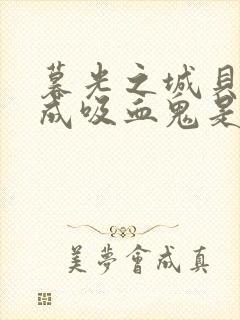 暮光之城貝
成吸血鬼是
美夢會成真